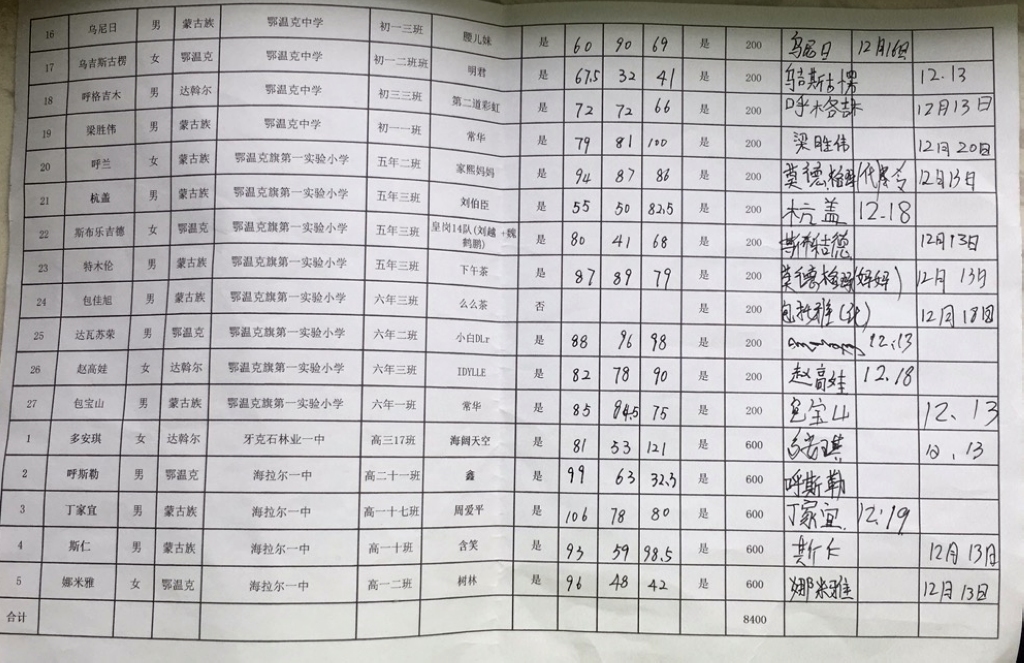 16 乌尼日 男 蒙古族 鄂温克中学 初一三班 腰儿妹 是 60 90 69 是 200 乌尼日 12月16日
17 乌吉斯古楞 女 鄂温克 鄂温克中学 初一二班班 明君 是 67.5 32 41 是 200 12.13
18 呼格吉木 男 达斡尔 鄂温克中学 初三三班 第二道彩虹 是 72 72 66 是 200 12月13日
19 梁胜伟 男 蒙古族 鄂温克中学 初一一班 常华 是 79 81 100 是 200 梁胜伟 12月20日
20 呼兰 女 蒙古族 鄂温克旗第一实验小学 五年二班 家熙妈妈 是 94 87 86 是 200 12月13日
21 杭盖 男 蒙古族 鄂温克旗第一实验小学 五年三班 刘伯臣 是 55 50 82.5 是 200 杭盖 12.18
22 斯布乐吉德 女 鄂温克 鄂温克旗第一实验小学 五年三班 皇岗14队(刘越 +魏鹤鹏) 是 80 41 68 是 200 12月13日
23 特木伦 男 蒙古族 鄂温克旗第一实验小学 五年三班 下午茶 是 87 89 79 是 200 12月13日
24 包佳旭 男 蒙古族 鄂温克旗第一实验小学 六年三班 么么茶 否 是 200 12月18日
25 达瓦苏荣 男 鄂温克 鄂温克旗第一实验小学 六年二班 小白DLr 是 88 96 98 是 200 12:13
26 赵高娃 女 达斡尔 鄂温克旗第一实验小学 六年三班 IDYLLE 是 82 78 90 是 200 赵高娃 12.18
27 包宝山 男 蒙古族 鄂温克旗第一实验小学 六年一班 常华 是 85 94.5 75 是 200 包宝山 12.13
1 多安琪 女 达斡尔 牙克石林业一中 高三17班 海阔天空 是 81 53 121 是 600 多安琪
2 呼斯勒 男 鄂温克 海拉尔一中 高二十一班 鑫 是 99 63 32.3 是 600 呼斯勒
3 丁家宜 男 蒙古族 海拉尔一中 高一十七班 周爱平 是 106 78 80 是 600 丁家宜 12:19
4 斯仁 男 蒙古族 海拉尔一中 高一十班 含笑 是 93 59 98.5 是 600 斯仁 12月13日
5 娜米雅 女 鄂温克 海拉尔一中 高一二班 树林 是 96 48 42 是 600 娜米雅 12月13日
合计 8400